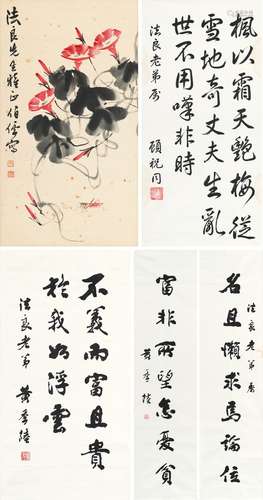 法良先生雅正
楓以霜天艷梅從
雪地奇丈夫生亂
世不用嘆非時
法良老弟屬
顧祝同
不義而富且貴
於我如浮雲
法良老弟
黃季陸
法良老弟屬
名且懶求焉論位
富非所望怎憂貧
黃季陸